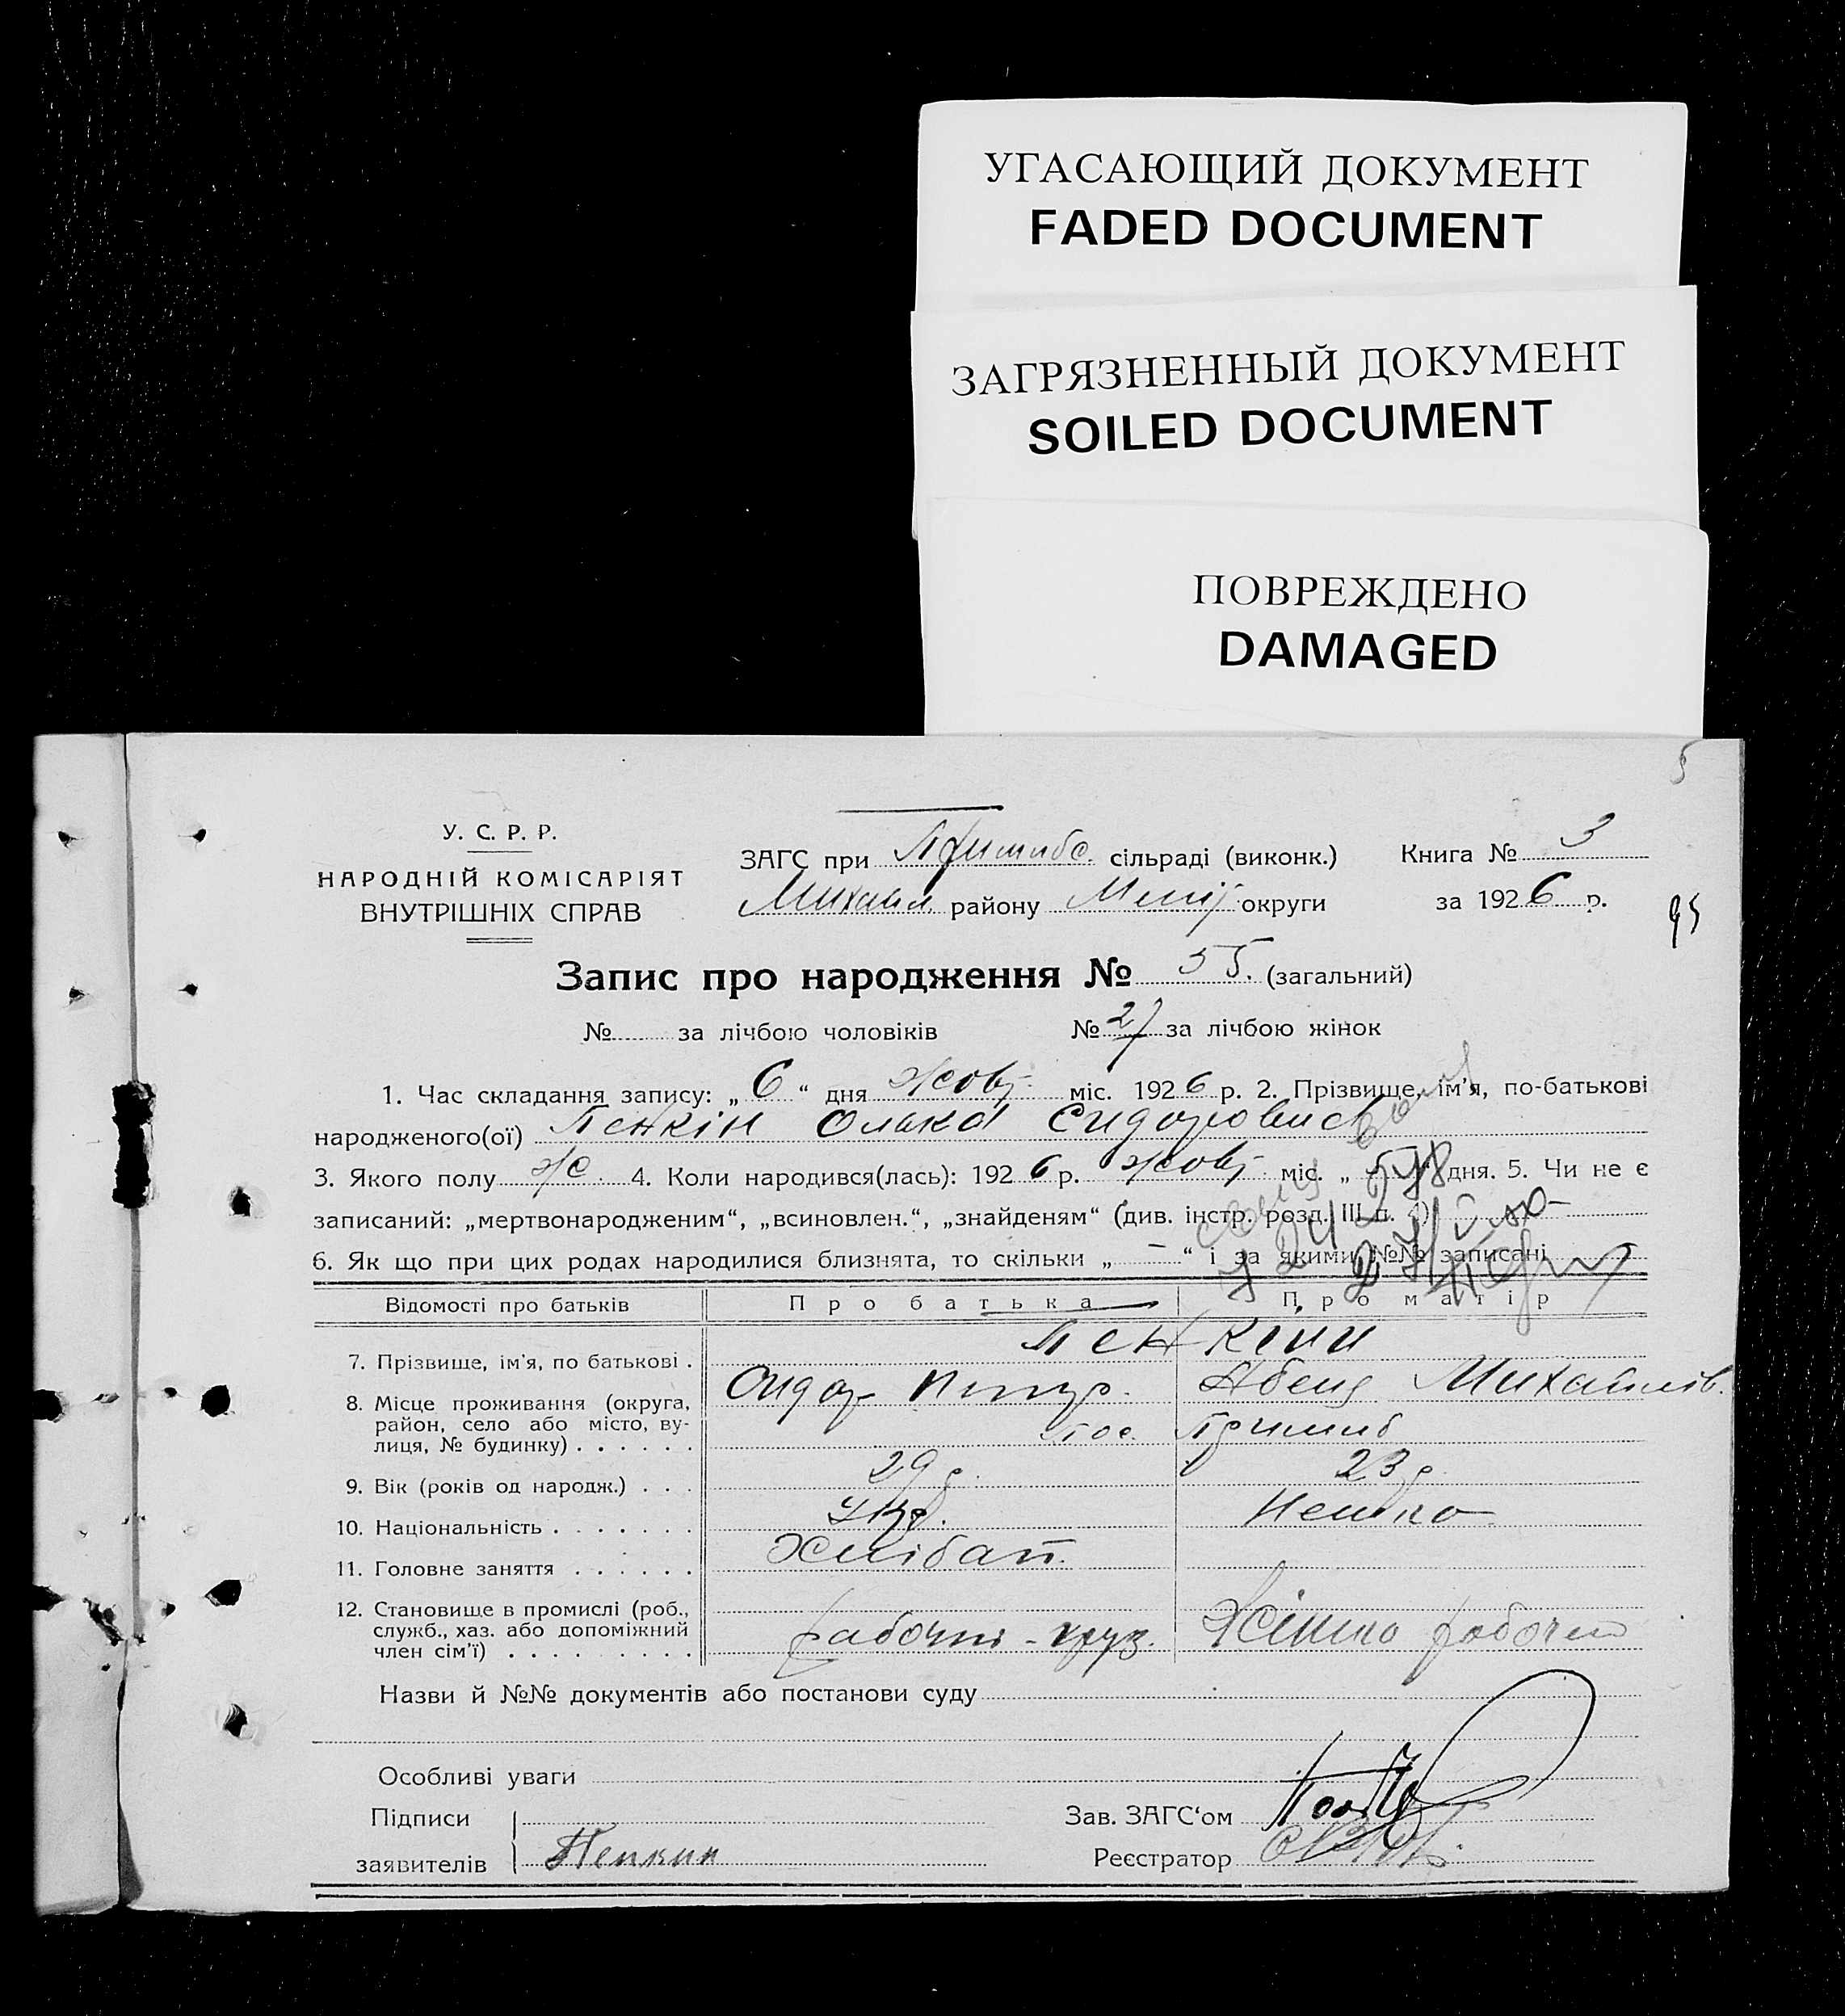 УГАСАЮЩИЙ ДОКУМЕНТ
FADED DOCUMENT
ЗАГРЯЗНЕННЫЙ ДОКУМЕНТ
SOILED DOCUMENT
ПОВРЕЖДЕНО
DAMAGED
5
У. С. Р. Р.
НАРОДНІЙ КОМІСАРІЯТ
ВНУТРІШНІХ СПРАВ
ЗАГС при Пришибс. сільраді (виконк.) Книга № 3
Михайл. району Меліт. округи за 1926 р.
95
Запис про народження № 55. (загальний)
№ за лічбою чоловіків № 27 за лічбою жінок
1. Час складання запису: „ 6 “ дня жовт. міс. 1926 р. 2. Прізвище, ім'я, по-батькові
народженого(ої) Пенкін Олька Сидоровна
3. Якого полу ж. 4. Коли народився(лась): 1926 р. жовт. міс. „ дня. 5. Чи не є
записаний: „мертвонародженим“, „всиновлен.“, „знайденям“ (див. інстр. розд. III п. )
6. Як що при цих родах народилися близнята, то скільки „ — “ і за якими №№ записані
Відомості про батьків Про батька Про матір
7. Прізвище, ім'я, по батькові . Пенкіни
8. Місце проживання (округа,
район, село або місто, вулиця, № будинку) . . . . . . пос. Пришиб
9. Вік (років од народж.) . . . 29 р. 23 р.
10. Національність . . . . . . . Укр. Немка
11. Головне заняття . . . . . . Хлібап.
12. Становище в промислі (роб.,
служб., хаз. або допоміжний
член сім'ї) . . . . . . . . . рабочий - груз. Жінка рабочего
Назви й №№ документів або постанови суду
Особливі уваги
Підписи Зав. ЗАГС'ом
заявителів Пенкин Реєстратор